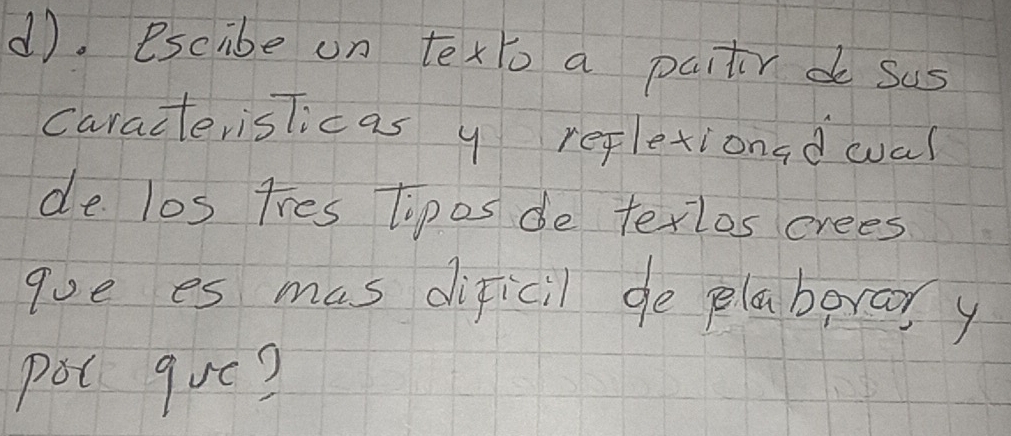 d). Escribe un texto a partir de sus
caracteristicas y reflexiona ¿cual
de los tres tipos de textos crees
que es mas dificil de elaborar y
por que?